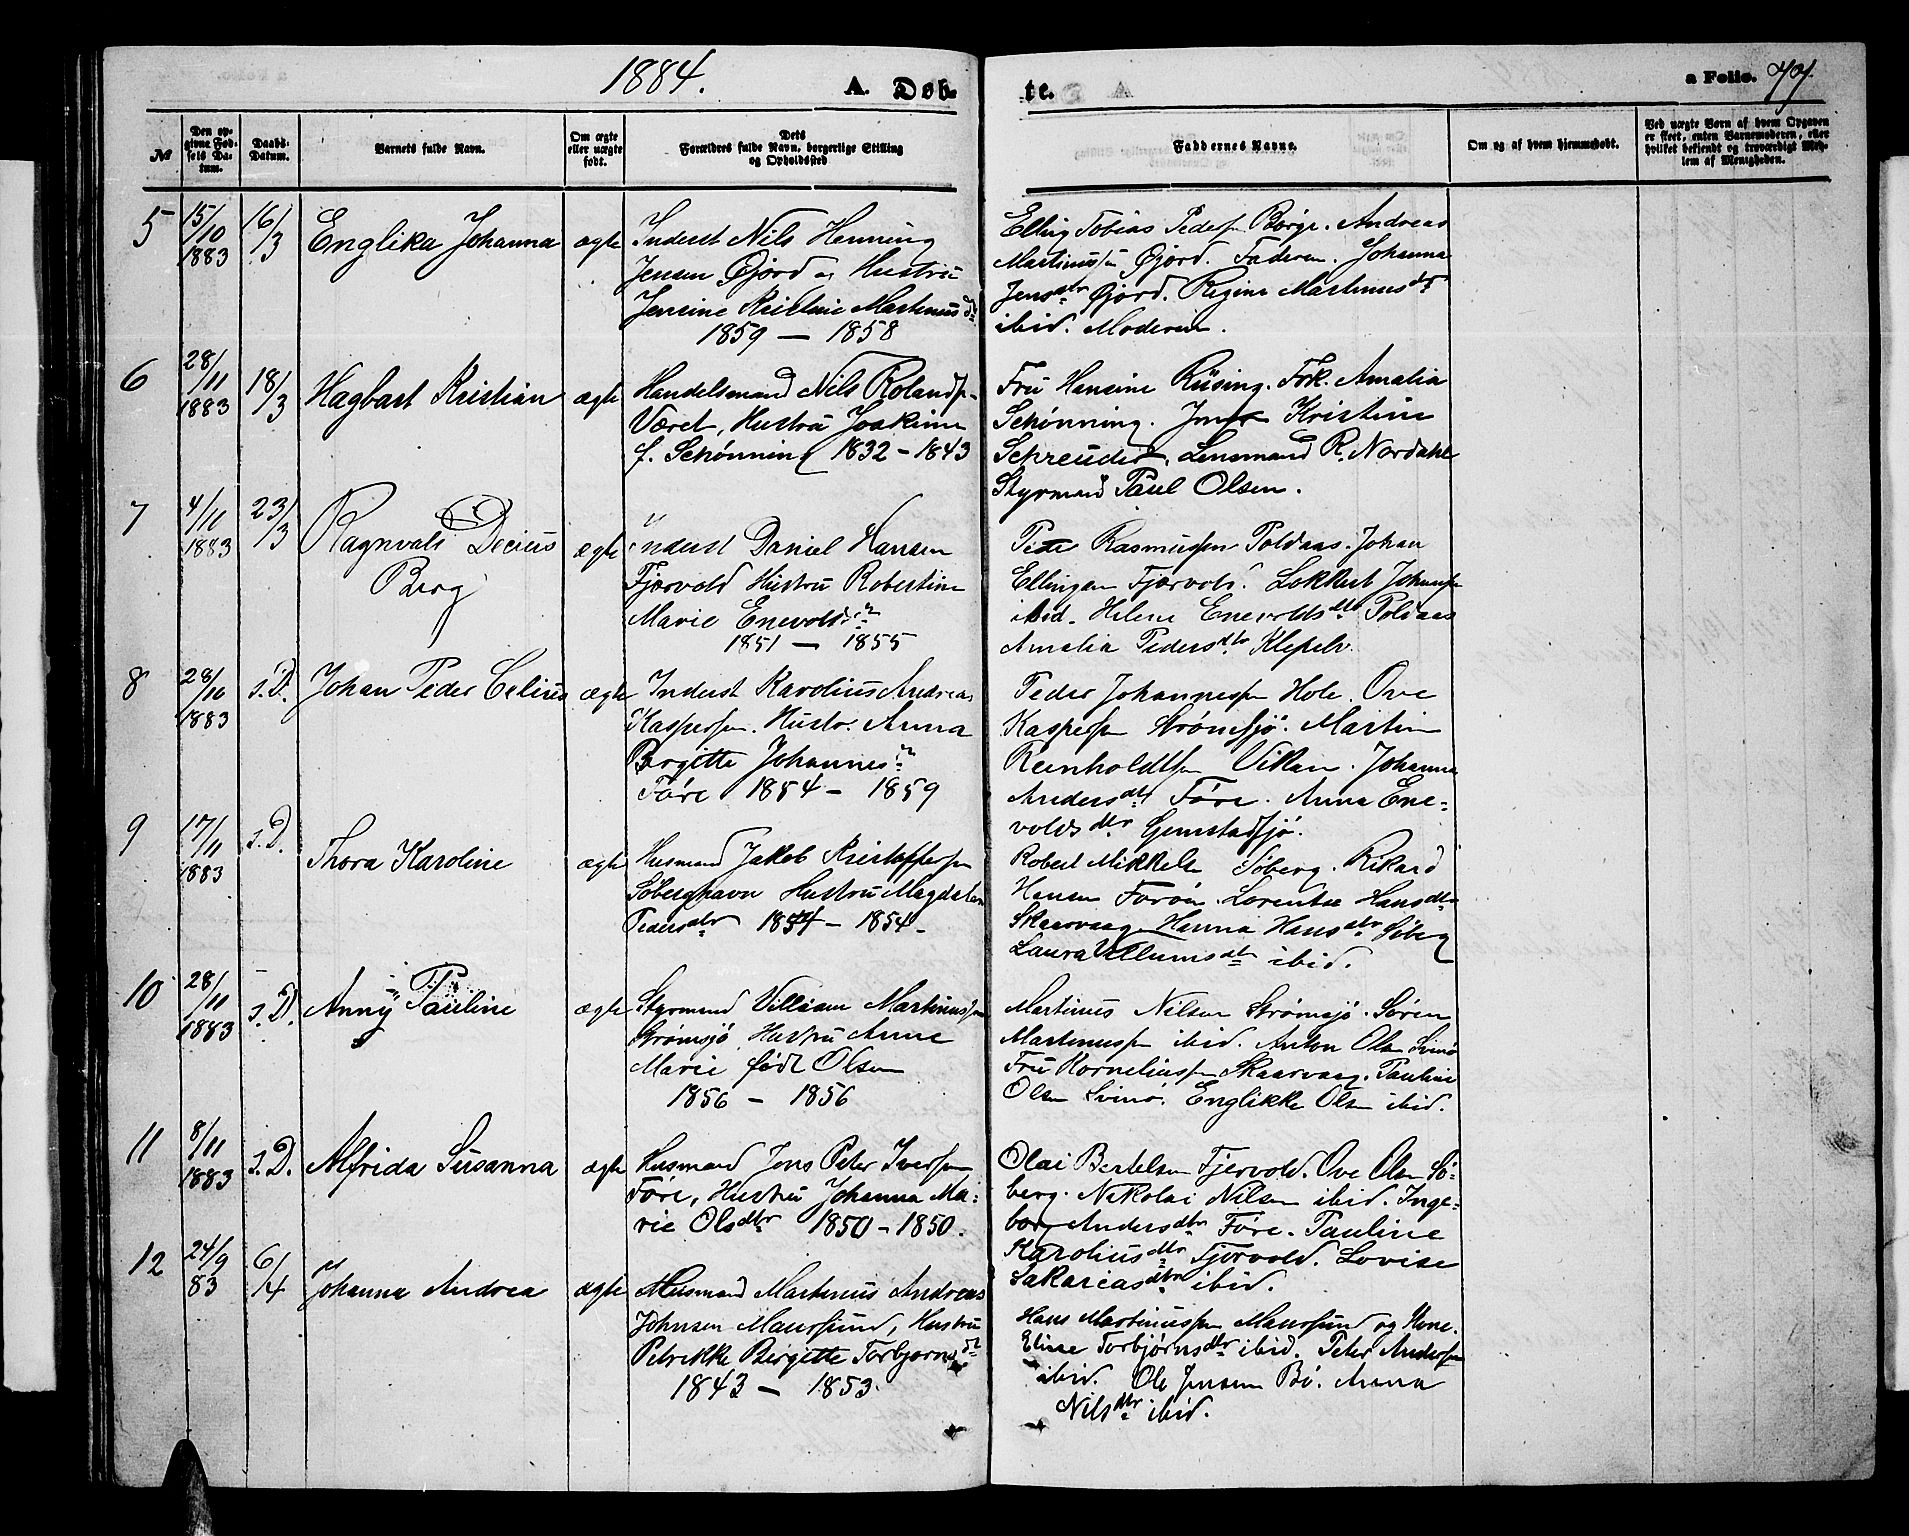 1884.
A. Døb-
te.
a Folio. 77.
№
Den op-
givne Fød-
sels Da-
tum.
Daabs-
Datum.
Barnets fulde Navn.
Om ægte
eller uægte
født.
Dets
Forældres fulde Navn, borgerlige Stilling
og Opholdssted
Faddernes Navne.
Om og af hvem hjemmedøbt.
Ved uægte Børn af hvem Opgaven
er skeet, enten Barnemoderen, eller
hvilket bekjendt og troværdigt Med-
lem af Menigheden.
5 15/10 1883 16/3 Englika Johanna ægte
Inderst Nils Henning
Jensen Øjord og Hustru
Jensine Kristine Martinusdtr
1859 – 1858
Elling Tobias Peders. Børge. Andreas
Martinussen Øjord. Faderen. Johanna
Jensdtr Øjord. Regine Martinusdtr
ibid. Moderen.
6 28/11 1883 18/3 Hagbart Kristian ægte
Handelsmand Nils Rolandsen
Været, Hustru Joakime
f. Schønning 1832 – 1843
Fru Hansine Rüsing. Frk. Amalia
Schønning. Kristine
Schreuder, Lensmand R. Nordahl
Styrmand Paul Olsen.
7 4/11 1883 23/3 Ragnvald Decius
Berg
ægte
Inderst Daniel Hansen
Fjærvold Hustru Robertine
Marie Enevoldsdtr
1851 – 1855
Peder Rasmussen Poldaas. Johan
Ellingsen Fjærvold. Lokkert Johansen
ibid. Helene Enevoldsdtr Poldaas
Amalia Pedersdtr Klepelv.
8 28/10 1883 s.D. Johan Peder Celius ægte
Inderst Karolius Andreas
Kaspersen. Hustr. Anna
Birgitte Johannesdtr
Føre 1854 – 1859
Peder Johannessen Hole. Ove
Kaspersen Strømsjø. Martin
Reinholdtsen Vikan. Johanna
Andersdtr Føre. Anna Ene-
voldsdtr Gimstadsjø.
9 17/11 1883 s.D.
Thora Karoline ægte
Husmand Jakob Kristoffersen
Søberghavn Hustru Magdalena
Pedersdtr 1854 – 1854 –
Robert Mikkelsen Søberg. Rikard
Hansen Forøen. Lorentse Hansdtr
Skaarvaag. Hanna Hansdtr Søberg
Laura Villumsdtr ibid.
10 28/11 1883 s.D. Anny Pauline ægte
Styrmand Villiam Martinussen
Strømsjø, Hustru Anne
Marie født Olsen
1856 – 1856
Martinus Nilsen Strømsjø. Søren
Martinussen ibid. Anton Olsen Svinø
Fru Korneliussen Skaarvaag. Pauline
Olsen Svinø. Englikke Olsen ibid.
11 8/11 1883 s.D. Alfrida Susanna ægte
Husmand Jens Peter Iversen
Føre, Hustru Johanna Ma-
rie Olsdtr 1850 – 1850.
Olai Bertelsen Fjervold. Ove Olsen Sø-
berg. Nikolai Nilsen ibid. Inge-
borg Andersdtr Føre. Pauline
Karoliusdtr Fjervold. Lovise
Sakariasdtr ibid.
12 24/9 83 6/4 Johanna Andrea ægte
Husmand Martinus Andreas
Johnsen Maursund, Hustru
Petrikke Birgitte Torbjørnsdtr
1843 – 1853.
Hans Martinussen Maursund og Kone
Eline Torbjørnsdtr ibid. Peter Andersen
ibid. Ole Jensen Bø. Anna
Nilsdtr ibid.